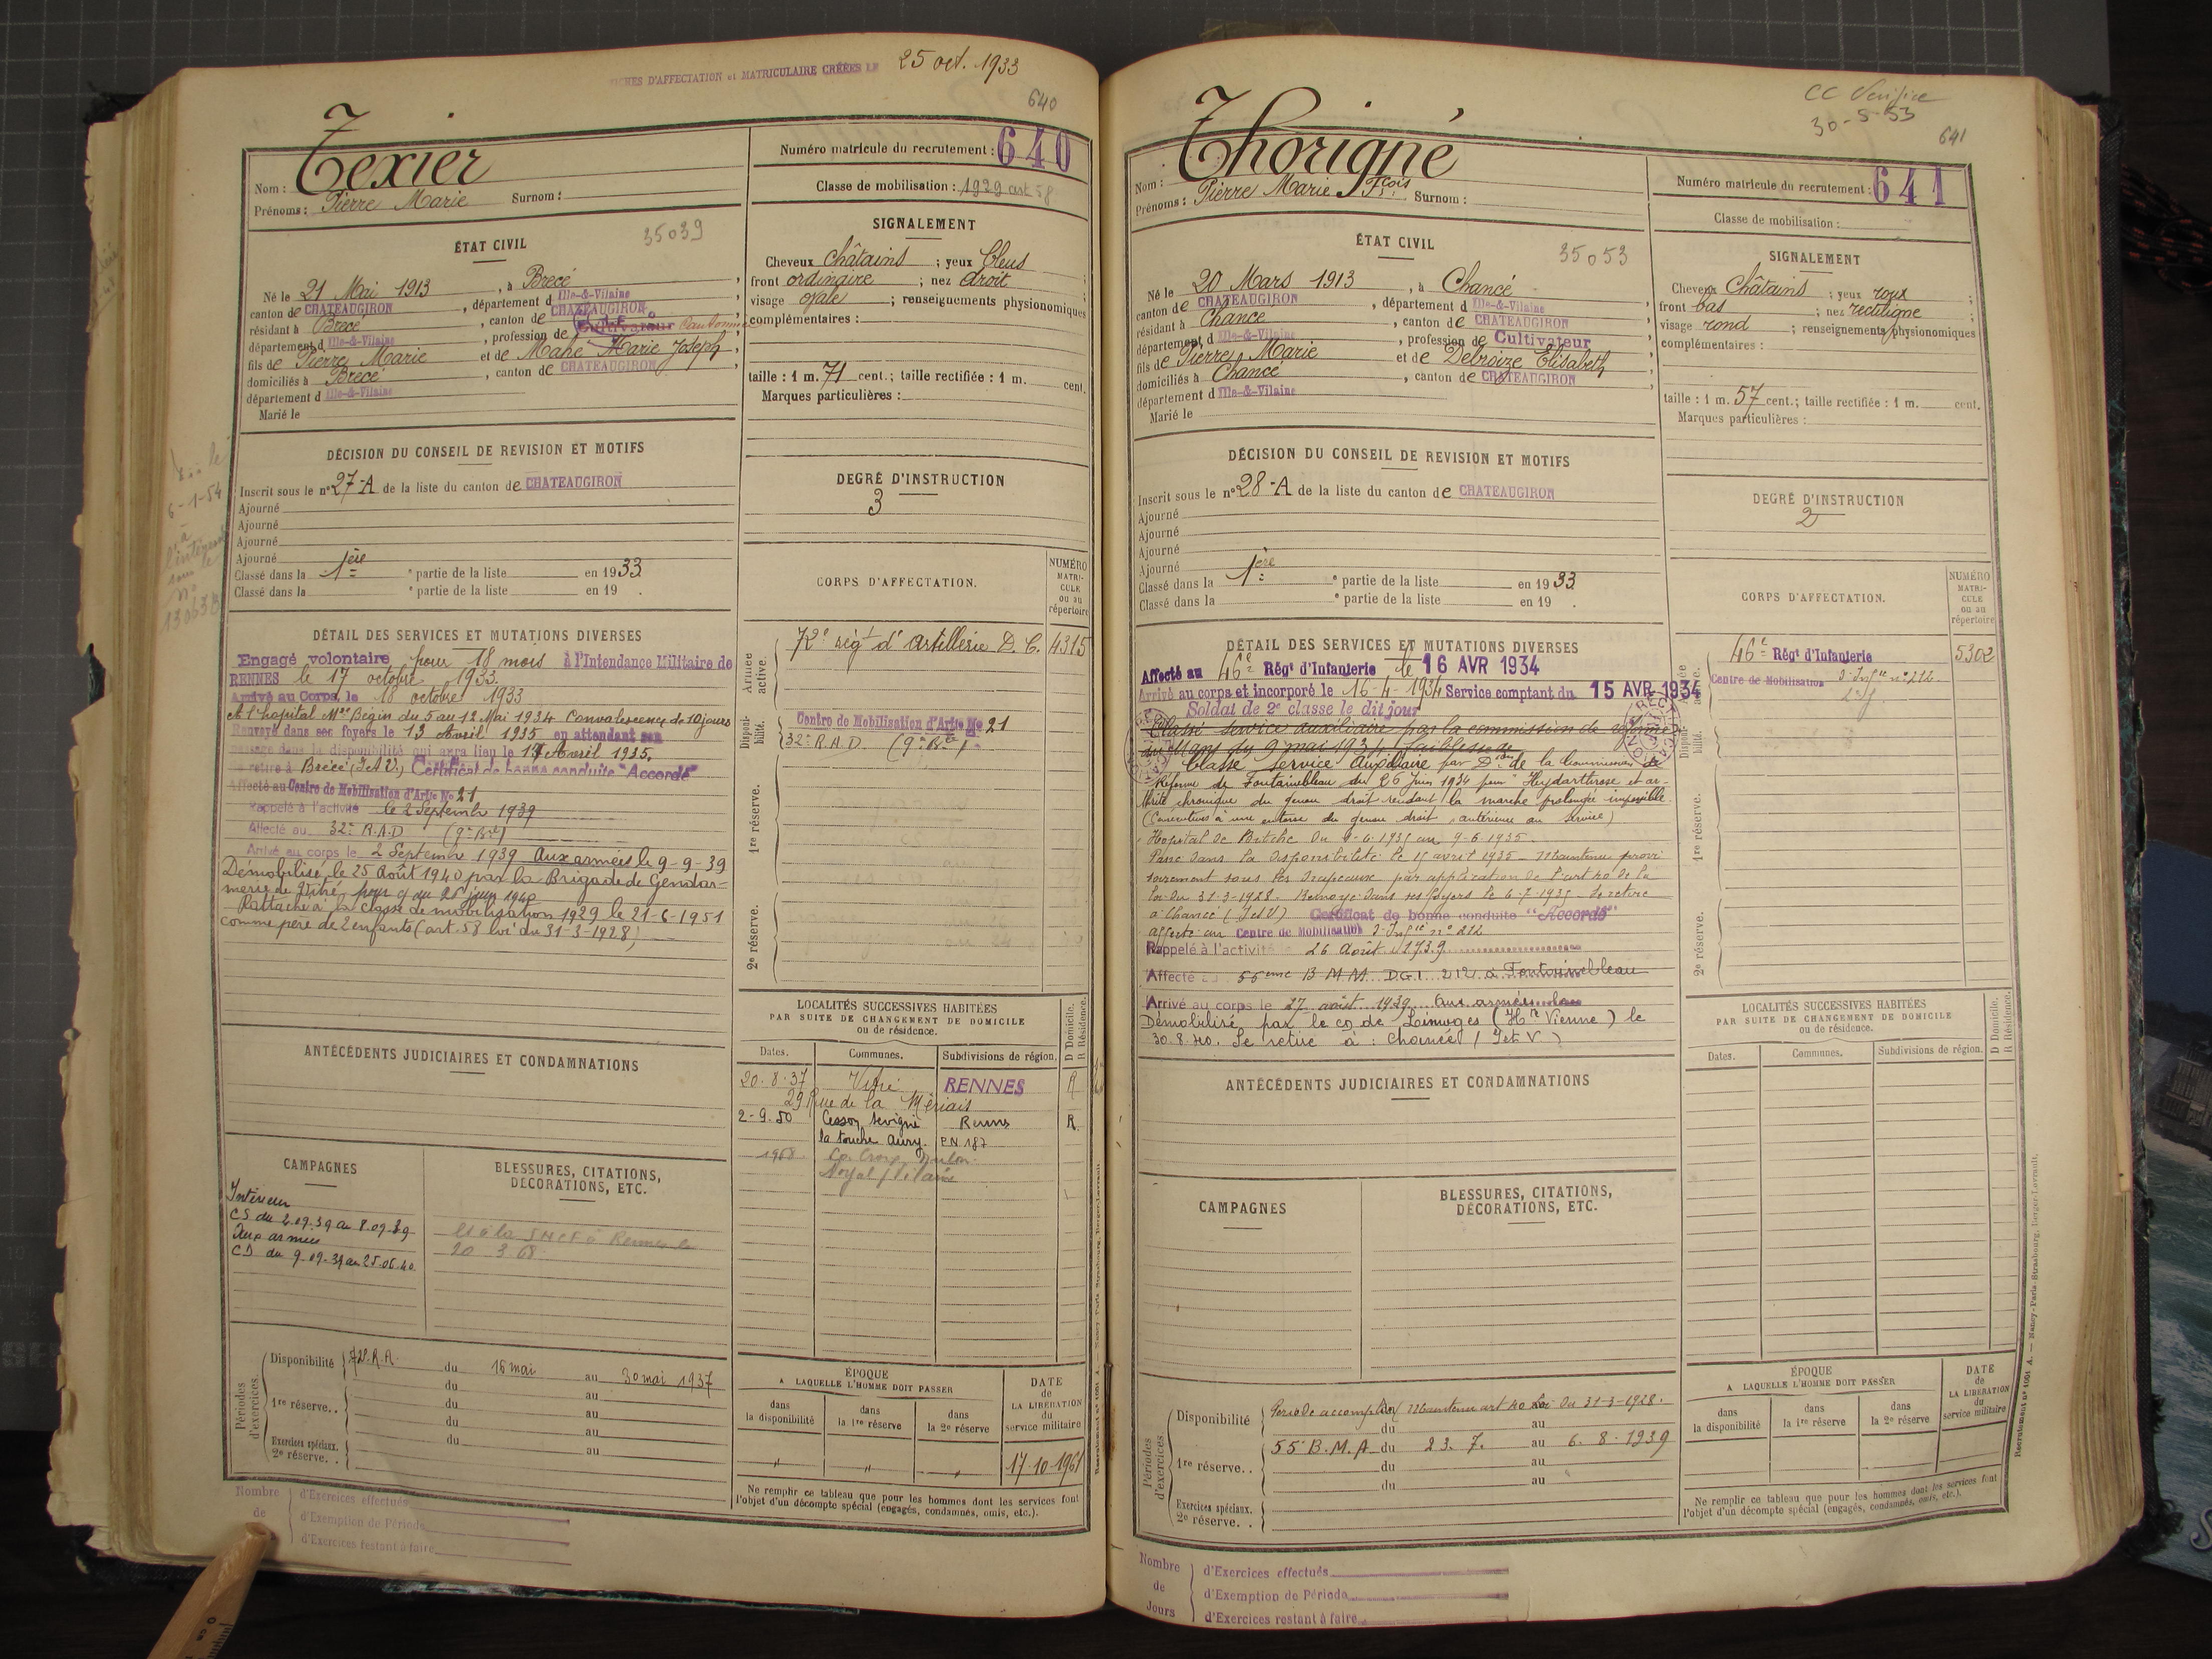 FICHES D'AFFECTATION et MATRICULAIRE CRÉÉES LE 25 oct. 1933
640
Nom : Texier
Prénoms : Pierre Marie Surnom :
Numéro matricule du recrutement : 640
Classe de mobilisation : 1929 art 58
ÉTAT CIVIL
35039
Né le 21 Mai 1913, à Brecé,
canton de CHATEAUGIRON, département d Ille-&-Vilaine
résidant à Brecé, canton de CHATEAUGIRON,
département d Ille-&-Vilaine, profession de Cultivateur Cantonnier
fils de Pierre Marie et de Mahé Marie Joseph,
domiciliés à Brecé, canton de CHATEAUGIRON,
département d Ille-&-Vilaine
Marié le
SIGNALEMENT
Cheveux châtains ; yeux bleus ;
front ordinaire ; nez droit ;
visage ovale ; renseignements physionomiques
complémentaires :
taille : 1 m. 71 cent.; taille rectifiée : 1 m. cent.
Marques particulières :
DÉCISION DU CONSEIL DE REVISION ET MOTIFS
Inscrit sous le n° 27-A de la liste du canton de CHATEAUGIRON
Ajourné
Ajourné
Ajourné
Ajourné
Classé dans la 1ère e partie de la liste en 1933
Classé dans la e partie de la liste en 19 .
le
6-1-54
à
n°
DEGRÉ D'INSTRUCTION
3
CORPS D'AFFECTATION.
NUMÉRO MATRICULE ou au répertoire
Armée active.
72e régt d'artillerie D. C. 4315
Disponibilité.
Centre de Mobilisation d'Artie No 21
32e R.A.D. (9e Bie)
1re réserve.
2e réserve.
DÉTAIL DES SERVICES ET MUTATIONS DIVERSES
Engagé volontaire pour 18 mois à l'Intendance Militaire de
RENNES le 17 octobre 1933.
Arrivé au Corps, le 18 octobre 1933
A l'hopital Mre Bégin du 5 au 12 Mai 1934 Convalescence de 10 jours
Renvoyé dans ses foyers le 13 Avril 1935 en attendant son
passage dans la disponibilité qui aura lieu le 17 Avril 1935.
se retire à Brécé (I et V.) Certificat de bonne conduite "Accordé"
Affecté au Centre de Mobilisation d'Artie No 21
Rappelé à l'activité le 2 Septembre 1939
Affecté au 32e R.A.D (9e Bie)
Arrivé au corps le 2 Septembre 1939 Aux armées le 9-9-39
Démobilisé le 25 Août 1940 par la Brigade de Gendar-
merie de Vitré
Rattaché à la classe de mobilisation 1929 le 21-6-1951
comme père de 2 enfants (art. 58 loi du 31-3-1928)
ANTÉCÉDENTS JUDICIAIRES ET CONDAMNATIONS
LOCALITÉS SUCCESSIVES HABITÉES
PAR SUITE DE CHANGEMENT DE DOMICILE
ou de résidence.
D Domicile. R Résidence.
Dates. Communes. Subdivisions de région.
20.8.37 Vitré RENNES R
29 Rue de la Mériais
2-9.50 Cesson Sévigné Rennes R
la touche Aury. P.N 187
1968
Noyal / Vilaine
CAMPAGNES
Intérieur
CS du 2.09.39 au 8.09.39
Aux armées
CD du 9.09.39 au 25.06.40.
BLESSURES, CITATIONS, DÉCORATIONS, ETC.
à la SNCF à Rennes le
20 3 68
Périodes d'exercices.
Disponibilité 72e R.A. du 16 mai au 30 mai 1937
du au
1re réserve.. du au
du au
Exercices spéciaux. 2e réserve. . du au
ÉPOQUE
A LAQUELLE L'HOMME DOIT PASSER
dans la disponibilité
dans la 1re réserve
dans la 2e réserve
DATE de LA LIBÉRATION du service militaire
" " " 17-10-1961
Ne remplir ce tableau que pour les hommes dont les services font
l'objet d'un décompte spécial (engagés, condamnés, omis, etc.).
Nombre de
d'Exercices effectués
d'Exemption de Période
d'Exercices restant à faire
CC Vérifiée
30-5-53
641
Nom : Thorigné
Prénoms : Pierre Marie Fçois Surnom :
Numéro matricule du recrutement : 641
Classe de mobilisation :
ÉTAT CIVIL
35053
Né le 20 Mars 1913, à Chancé,
canton de CHATEAUGIRON, département d Ille-&-Vilaine
résidant à Chancé, canton de CHATEAUGIRON
département d Ille-&-Vilaine, profession de Cultivateur
fils de Pierre Marie et de Delroize Elisabeth,
domiciliés à Chancé, canton de CHATEAUGIRON,
département d Ille-&-Vilaine
Marié le
SIGNALEMENT
Cheveux châtains ; yeux roux ;
front bas ; nez rectiligne ;
visage rond ; renseignements physionomiques
complémentaires :
taille : 1 m. 57 cent.; taille rectifiée : 1 m. cent.
Marques particulières :
DÉCISION DU CONSEIL DE REVISION ET MOTIFS
Inscrit sous le n° 28-A de la liste du canton de CHATEAUGIRON
Ajourné
Ajourné
Ajourné
Ajourné
Classé dans la 1ère e partie de la liste en 1933
Classé dans la e partie de la liste en 19 .
DEGRÉ D'INSTRUCTION
2
CORPS D'AFFECTATION.
NUMÉRO MATRICULE ou au répertoire
Armée active.
46e Régt d'Infanterie 5302
Centre de Mobilisation d'Infie n° 212
Disponibilité.
1re réserve.
2e réserve.
DÉTAIL DES SERVICES ET MUTATIONS DIVERSES
Affecté au 46e Régt d'Infanterie le 16 AVR 1934
Arrivé au corps et incorporé le 16-4-1934 Service comptant du 15 AVR 1934
Soldat de 2e classe le dit jour
Classé service auxiliaire par la commission de réforme
du 9 mai 1934
Classé service Auxiliaire par Don de la Commission de
Réforme de Fontainebleau du 26 Juin 1934 pour "Hydarthrose et ar-
thrite chronique du genou droit rendant la marche prolongée impossible.
(Consécutives à une entorse du genou droit, antérieure au service)
Hopital de Bitche du 9-4-1935 au 9-6-1935.
Passé dans la disponibilité le 15 avril 1935 - Maintenu provi
soirement sous les drapeaux par application de l'art 40 de la
loi du 31-3-1928. Renvoyé dans ses foyers le 6-7-1935. Se retire
à Chancé (I et V) Certificat de bonne conduite "Accordé"
affecté au Centre de Mobilisation d'Infie n° 212
Rappelé à l'activité 26 Août 1939
Affecté au 55ème B M M. D.G.I. 212 à Fontainebleau
Arrivé au corps le 27 août 1939 Aux armées
Démobilisé par le co de Limoges (Hte Vienne) le
30.8.40. Se retire à : Chancé (I et V)
ANTÉCÉDENTS JUDICIAIRES ET CONDAMNATIONS
LOCALITÉS SUCCESSIVES HABITÉES
PAR SUITE DE CHANGEMENT DE DOMICILE
ou de résidence.
D Domicile. R Résidence.
Dates. Communes. Subdivisions de région.
CAMPAGNES
BLESSURES, CITATIONS, DÉCORATIONS, ETC.
Périodes d'exercices
Disponibilité Période accomplie (Maintenu art 40 Loi du 31-3-1928.
du au
1re réserve.. 55 B.M.A du 23. 7. au 6. 8. 1939
du au
du au
Exercices spéciaux. 2e réserve. .
ÉPOQUE
A LAQUELLE L'HOMME DOIT PASSER
dans la disponibilité
dans la 1re réserve
dans la 2e réserve
DATE de LA LIBÉRATION du service militaire
Ne remplir ce tableau que pour les hommes dont les services font
l'objet d'un décompte spécial (engagés, condamnés, omis, etc.).
Nombre de Jours
d'Exercices effectués
d'Exemption de Période
d'Exercices restant à faire
Recrutement n° 1001 A. — Nancy-Paris-Strasbourg, Berger-Levrault.